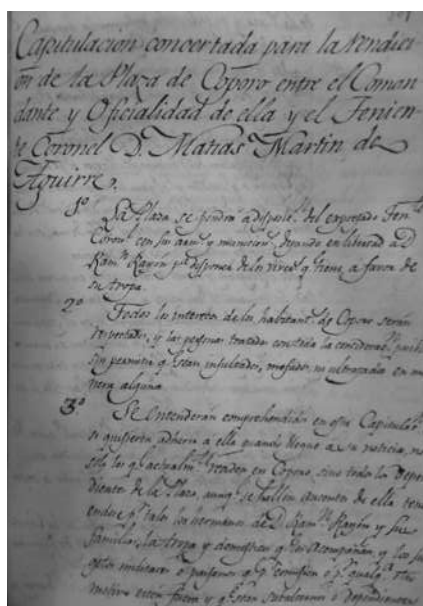 Capitulacion concertada para la rendici
on de la Plaza de Coporo entre el Coman
dante y Oficialidad de ella y el Tenien
te Coronel D. Matias Martin de
Aguirre.
1º La Plaza se pondra a disposn. del expresado Tente.
Coronl. con sus arms. y municions. dejando en libertad a D.
Ramn. Rayón pa. disponer de los viveres q. tiene, a favor de
su tropa.
2º Todos los intereses de los habitants. de Coporo serán
respetados, y las personas tratadas con toda la considerasn.
sin permitir q. sean insultados, mofados, ni ultrajados en ma
nera alguna.
3º Se entenderán comprehendidos en esta Capitulasn.
si quisieren adherir a ella quando llegue a su noticia, no
solo los q. actualmte. residen en Coporo, sino todos los depen
dientes de la Plaza, aunq. se hallen ausentes de ella
pr. tales los hermanos de D. Ramn. Rayón y sus
familias, la tropa y domesticos q. los acompañan, y los su
getos militares o paisanos q. pr. comision o pr. qualqa. otro
motivo esten fuera y q. sean subalternos o dependientes